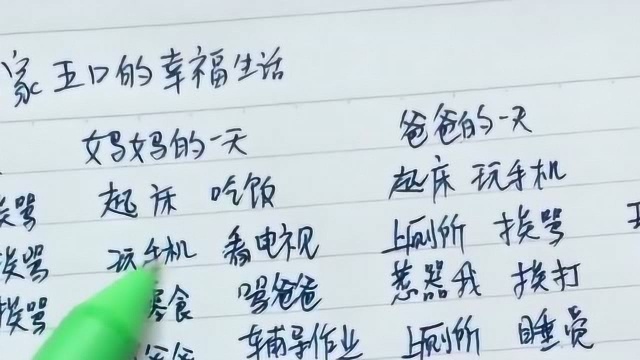 家五口的幸福生活
妈妈的一天 爸爸的一天
挨骂 起床 吃饭 起床 玩手机
挨骂 玩手机 看电视 上厕所 挨骂
挨骂 零食 骂爸爸 惹器我 挨打
爸爸 辅导作业 上厕所 睡觉